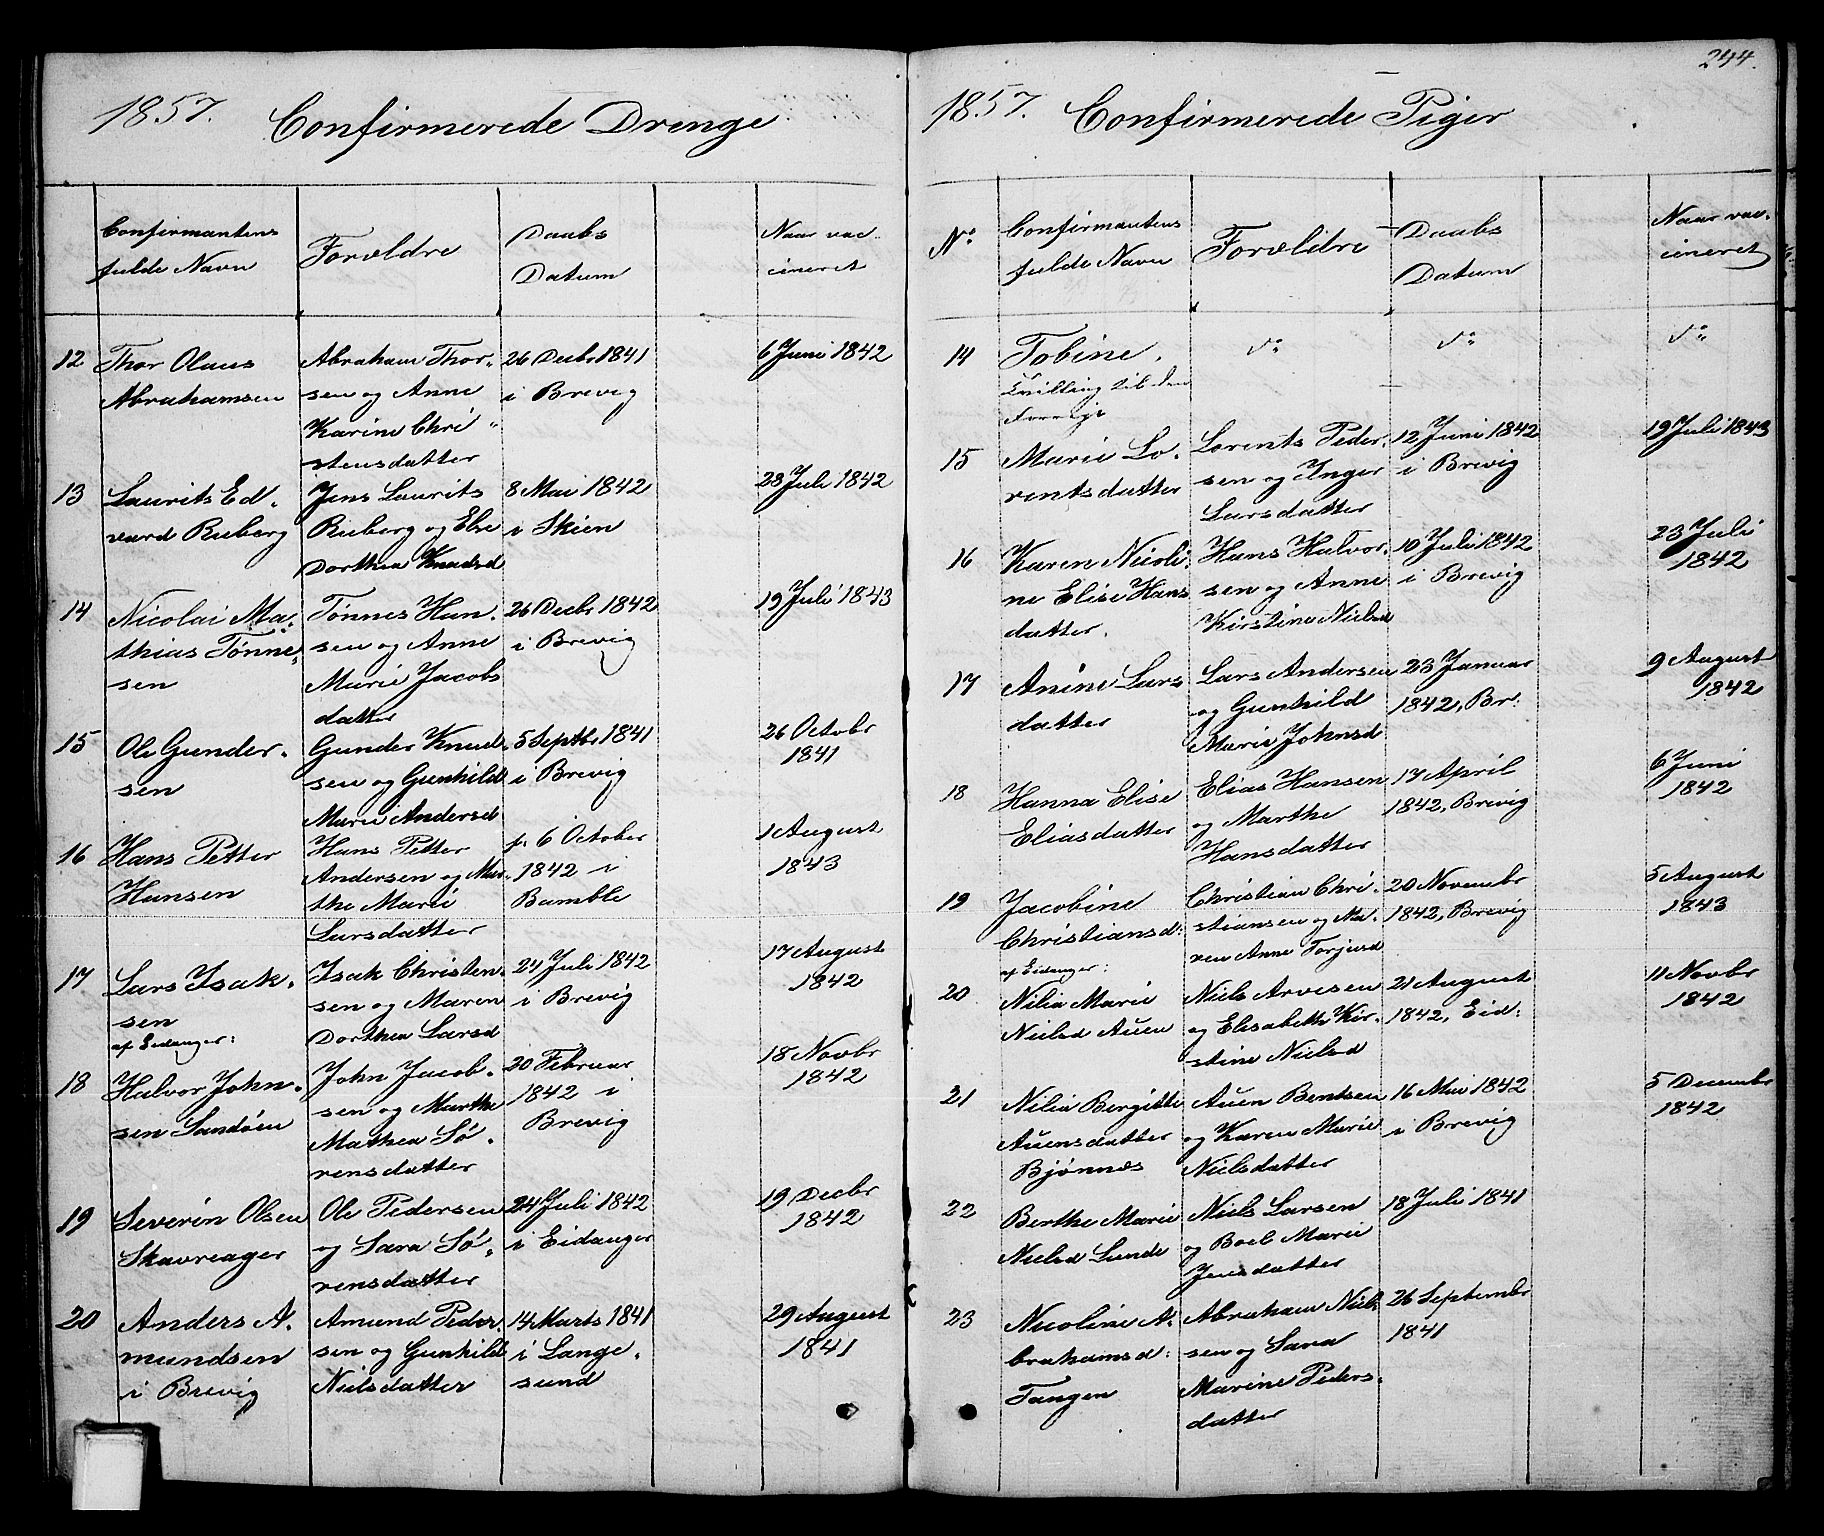 1857. Confirmerede Drenge
Confirmantens fulde Navn | Forældre | Daabs Datum | Naar vaccineret
12 Thor Olaus
Abrahamsen
Abraham Thor-
sen og Anne
Karine Chri-
stensdatter
26 Decbr 1841
i Brevig
6 Juni 1842
13 Laurits Ed-
vard Rieberg
Jens Laurits
Rieberg og Else
Dorthea Knudsd
8 Mai 1842
i Skien
28 Juli 1842
14 Nicolai Ma-
thias Tønne-
sen
Tønnes Han-
sen og Anne
Marie Jacobs
datter
26 Decbr 1842
i Brevig
19 Juli 1843
15 Ole Gunder-
sen
Gunder Knud-
sen og Gunhild
Marie Andersd
5 Septbr 1841
i Brevig
26 Octobr
1841
16 Hans Petter
Hansen
Hans Petter
Andersen og Mar-
the Marie
Larsdatter
p. 6 October
1842 i
Bamble
1 August
1843
17 Lars Isak-
sen
af Eidanger:
Isak Christen-
sen og Maren
Dorthea Larsd
24 Juli 1842
i Brevig
17 August
1842
18 Halvor John-
sen Sandøen
John Jacob-
sen og Marthe
Mathea Sø-
rensdatter
20 Februar
1842 i
Brevig
18 Novbr
1842
19 Severin Olsen
Skavreager
Ole Pedersen
og Sara Sø-
rensdatter
24 Juli 1842
i Eidanger
19 Decbr
1842
20 Anders A-
mundsen
i Brevig
Amund Peder-
sen og Gunhild
Nielsdatter
14 Marts 1841
i Lange-
sund
29 August
1841
244.
1857. Confirmerede Piger
No | Confirmantens fulde Navn | Forældre | Daabs Datum | Naar vaccineret
14 Tobine.
Tvilling til den
Forrige
do
do
do
15 Marie Lo-
rentsdatter
Lorents Peder-
sen og Inger
Larsdatter
12 Juni 1842
i Brevig
19 Juli 1843
16 Karen Nicoli-
ne Elise Hans
datter.
Hans Halvor-
sen og Anne
Kirstine Nielsd
10 Juli 1842
i Brevig
23 Juli
1842
17 Anine Lars
datter
Lars Andersen
og Gunhild
Marie Johnsd
23 Januar
1842, Br:
9 August
1842
18 Hanna Elise
Eliasdatter
Elias Hansen
og Marthe
Hansdatter
17 April
1842, Brevig
6 Juni
1842
19 Jacobine
Christiansd:
Christian Chri-
stiansen og Ma-
ren Anne Torjusd
20 Novembr
1842, Brevig
5 August
1843
af Eidanger:
20 Nilia Marie
Nielsd Auen
Niels Arvesen
og Elisabeth Kir-
stine Nielsd
21 August
1842, Eid:
11 Novbr
1842
21 Nilia Bergitte
Auensdatter
Bjønnes
Auen Bentsen
og Karen Marie
Nielsdatter
16 Mai 1842
i Brevig
5 Decembr
1842
22 Berthe Marie
Nielsd Lunde
Niels Larsen
og Boel Marie
Jensdatter
18 Juli 1841
23 Nicoline A-
brahamsd:
Tangen
Abraham Niel-
sen og Sara
Marine Peders-
datter
26 Septembr
1841